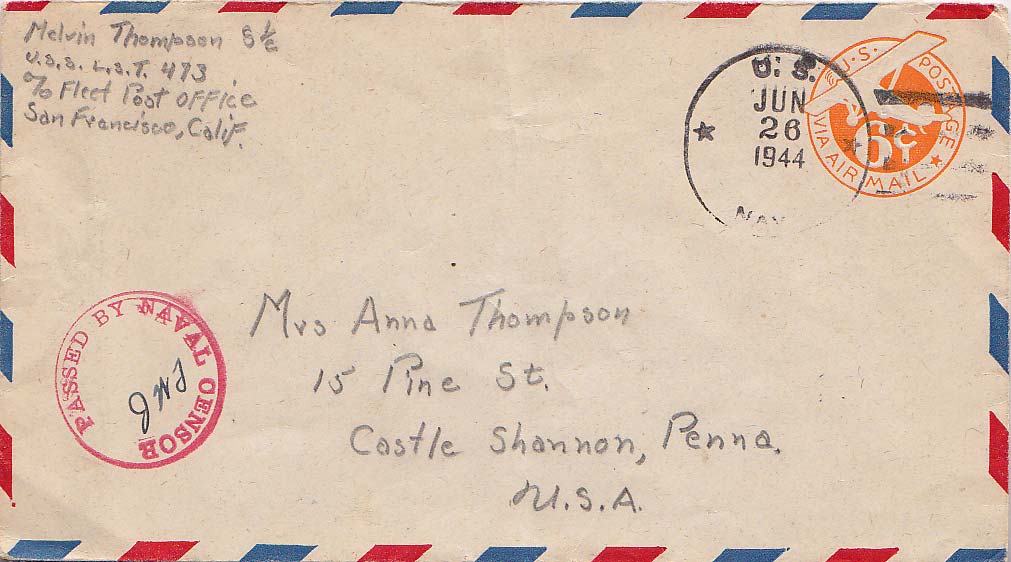 Melvin Thompson S 1/c
U.S.S. L.S.T. 473
c/o Fleet Post Office
San Francisco, Calif.
U. S.
JUN
26
1944
NAVY
U.S. POSTAGE
6¢
VIA AIR MAIL
PASSED BY NAVAL CENSOR
Mrs Anna Thompson
15 Pine St.
Castle Shannon, Penna.
U.S.A.